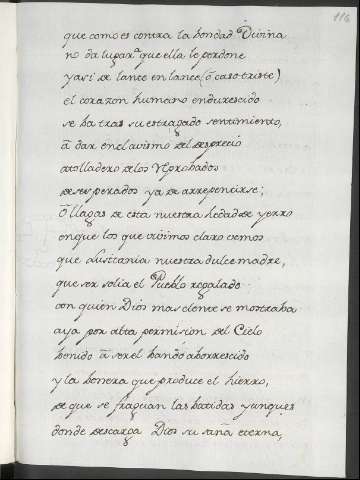 116
que como es contra la bondad Divina
no da lugar a que ella le perdone
y asi de lance en lance (ô caso triste)
el corazon humano endurescido
se ba tras su estragado sentimiento,
â dar en el avismo del desprecio
atolladero de los reprobados
desesperados ya de arrepentirse;
ô llagas de esta nuestra hedad de yerro
en que los que vivimos claro vemos
que Lusitania nuestra dulce madre,
que ser solia el Pueblo regalado
con quien Dios mas clemte se mostraba
aya por alta permision del Cielo
benido â ser el bando aborrescido
y la honera que produce el hierro,
de que se fraguan las batidas yunques
donde descarga Dios su saña eterna,